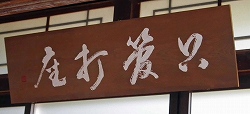 只管打座